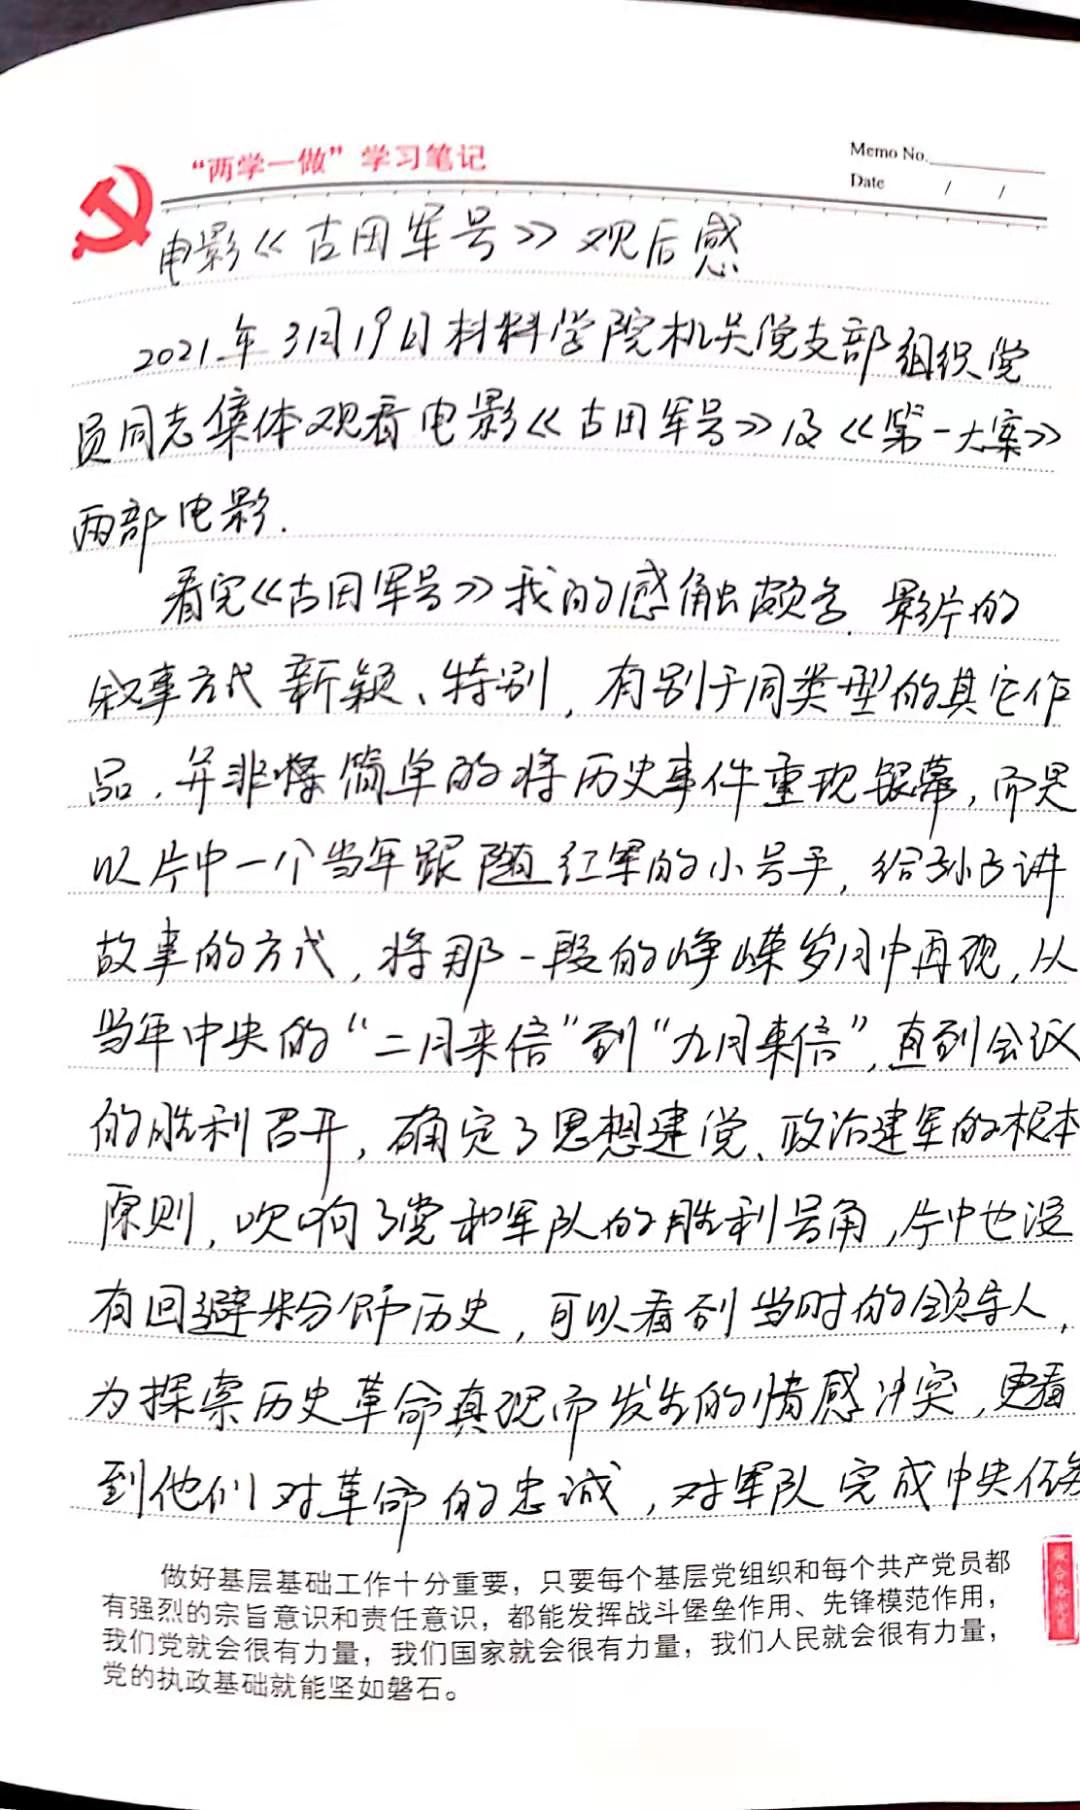 “两学一做”学习笔记
Memo No.
Date / /
电影《古田军号》观后感
2021年3月19日材料学院机关党支部组织党
员同志集体观看电影《古田军号》及《第一大案》
两部电影.
看完《古田军号》我的感触颇多.影片的
叙事方式新颖、特别,有别于同类型的其它作
品.并非简单的将历史事件重现银幕,而是
以片中一个当年跟随红军的小号手,给孙子讲
故事的方式,将那一段的峥嵘岁月中再现,从
当年中央的“二月来信”到“九月来信”,直到会议
的胜利召开,确定了思想建党、政治建军的根本
原则,吹响了党和军队的胜利号角,片中也没
有回避粉饰历史,可以看到当时的领导人,
为探索历史革命真理而发生的情感冲突,更看
到他们对革命的忠诚,对军队完成中央任务
做好基层基础工作十分重要，只要每个基层党组织和每个共产党员都
有强烈的宗旨意识和责任意识，都能发挥战斗堡垒作用、先锋模范作用，
我们党就会很有力量，我们国家就会很有力量，我们人民就会很有力量，
党的执政基础就能坚如磐石。
做合格党员